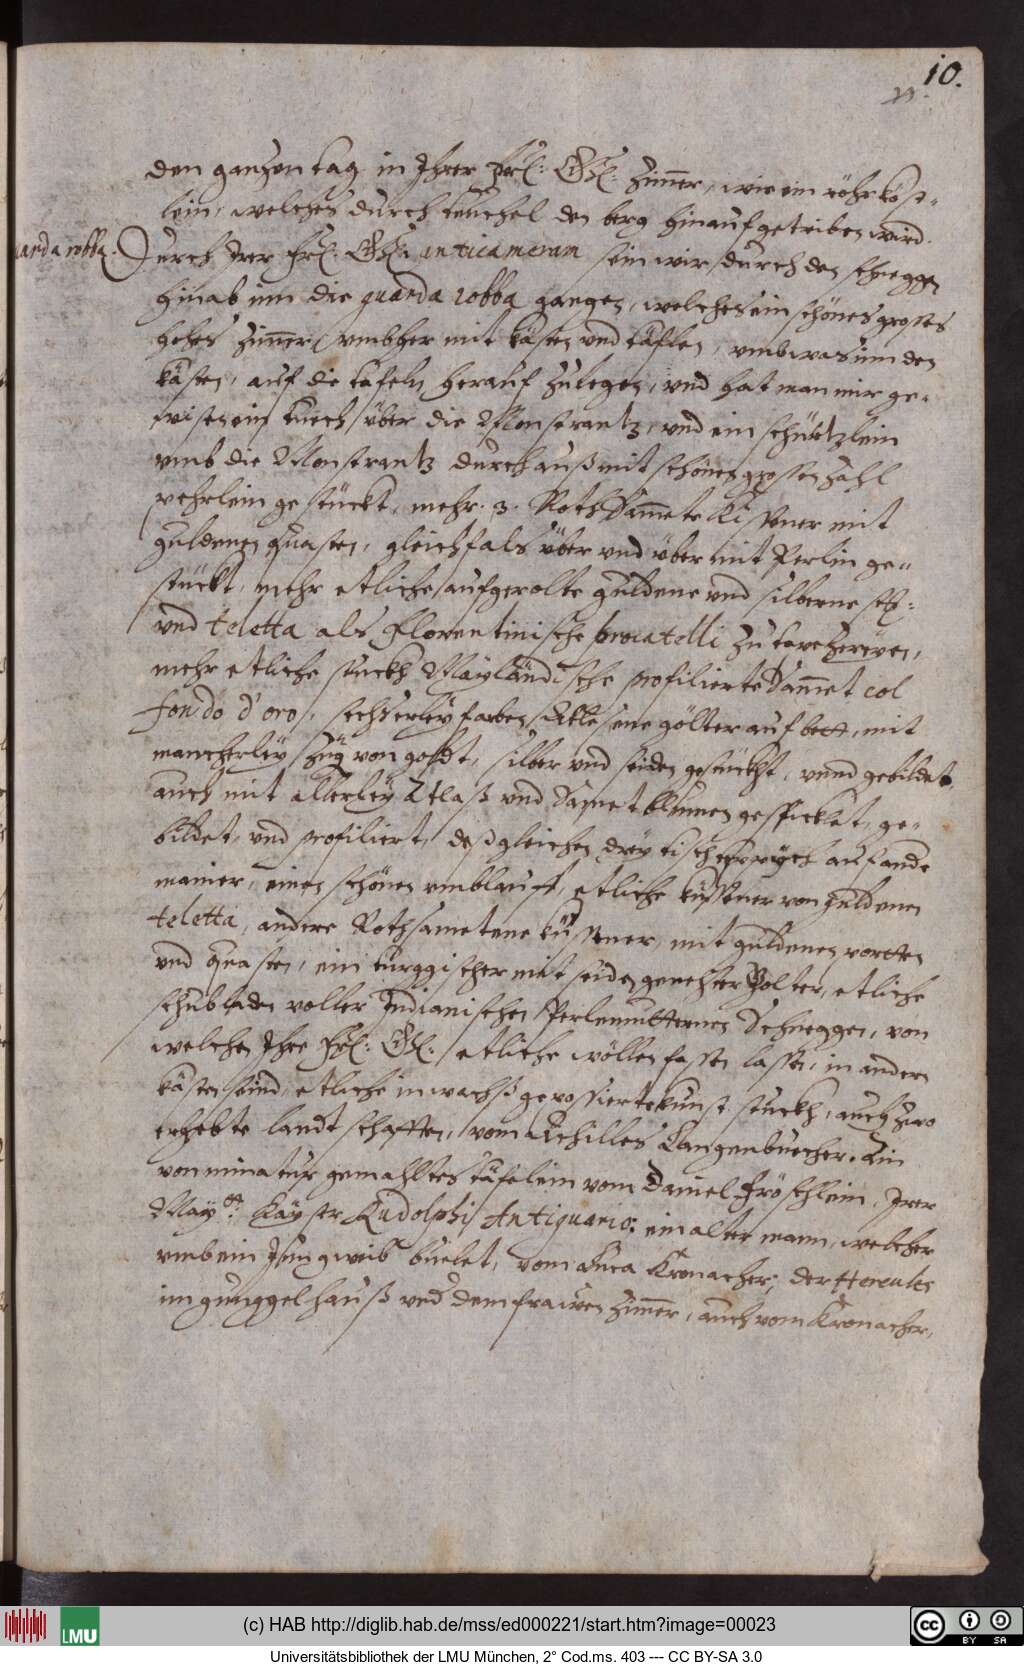 10.
den gantzen tag in Ihrer Frl: Gl: Zimmer, wie ein röhrkäst-
lein, welches durch teuchel den berg hinauf getriben wird.
guarda robba. Durch Irer Frl: Gl: anticameram sein wir durch den schneggen
hinab inn die guarda robba gangen, welches ein schönes grosses
hohes Zimmer, umbher mit kästen und täflen, umb was inn den
kästen, auf die tafeln herauf zulegen, und hat man mir ge-
wisen ein tuech über die Monstrantz, und ein schürtzlein
umb die Monstrantz durchauß mit schönen grossen Zahl
perlein gestückt, mehr .3. Roth Sammete Kissener mit
guldenen quasten, gleichfals über und über mit Perlin ge-
stückt, mehr etliche aufgerolte guldene und silberne
und teletta als Florentinische procatelli zu tapezereyen,
mehr etliche stuckh Mayländische profilierte Sammet col
fondo d'oro, sechserley farben Atlesene gölter auf bett, mit
mancherley Züg von goldt, silber und seiden gestückht, unnd gebildet
auch mit allerley Atlaß und Samet blumen gespicklet, ge-
bildet, und profiliert, deßgleichen drey tischteppich auf ande
manier, einen schönen umblauff, etliche küssener von guldenen
teletta, andere Rothsametene küssener, mit guldenen portten
und quasten, ein türggischer mit seiden genehter Polter, etliche
schubladen voller Indianischen Perlenmutternen Schneggen, von
welchen Ihre Frl: Gl: etliche wöllen fassen lassen, in andern
kästen seind, etliche in wachß gepossierte kunst stuckh, auch zwo
erhebte landtschafften, vom Achilles Langenbuecher. Ein
von minatur gemahltes täfelein vom Daniel Fröschlein, Irer
May:tt Kayser Rudolphi Antiquario: ein alter mann, welcher
umb ein Jung weib buelet, vom Luca Kronacher, der Hercules
im gunggelhauß und dem frawen Zimmer, auch vom Kronacher,
(c) HAB http://diglib.hab.de/mss/ed000221/start.htm?image=00023
LMU
CC BY SA
Universitätsbibliothek der LMU München, 2° Cod.ms. 403 --- CC BY-SA 3.0